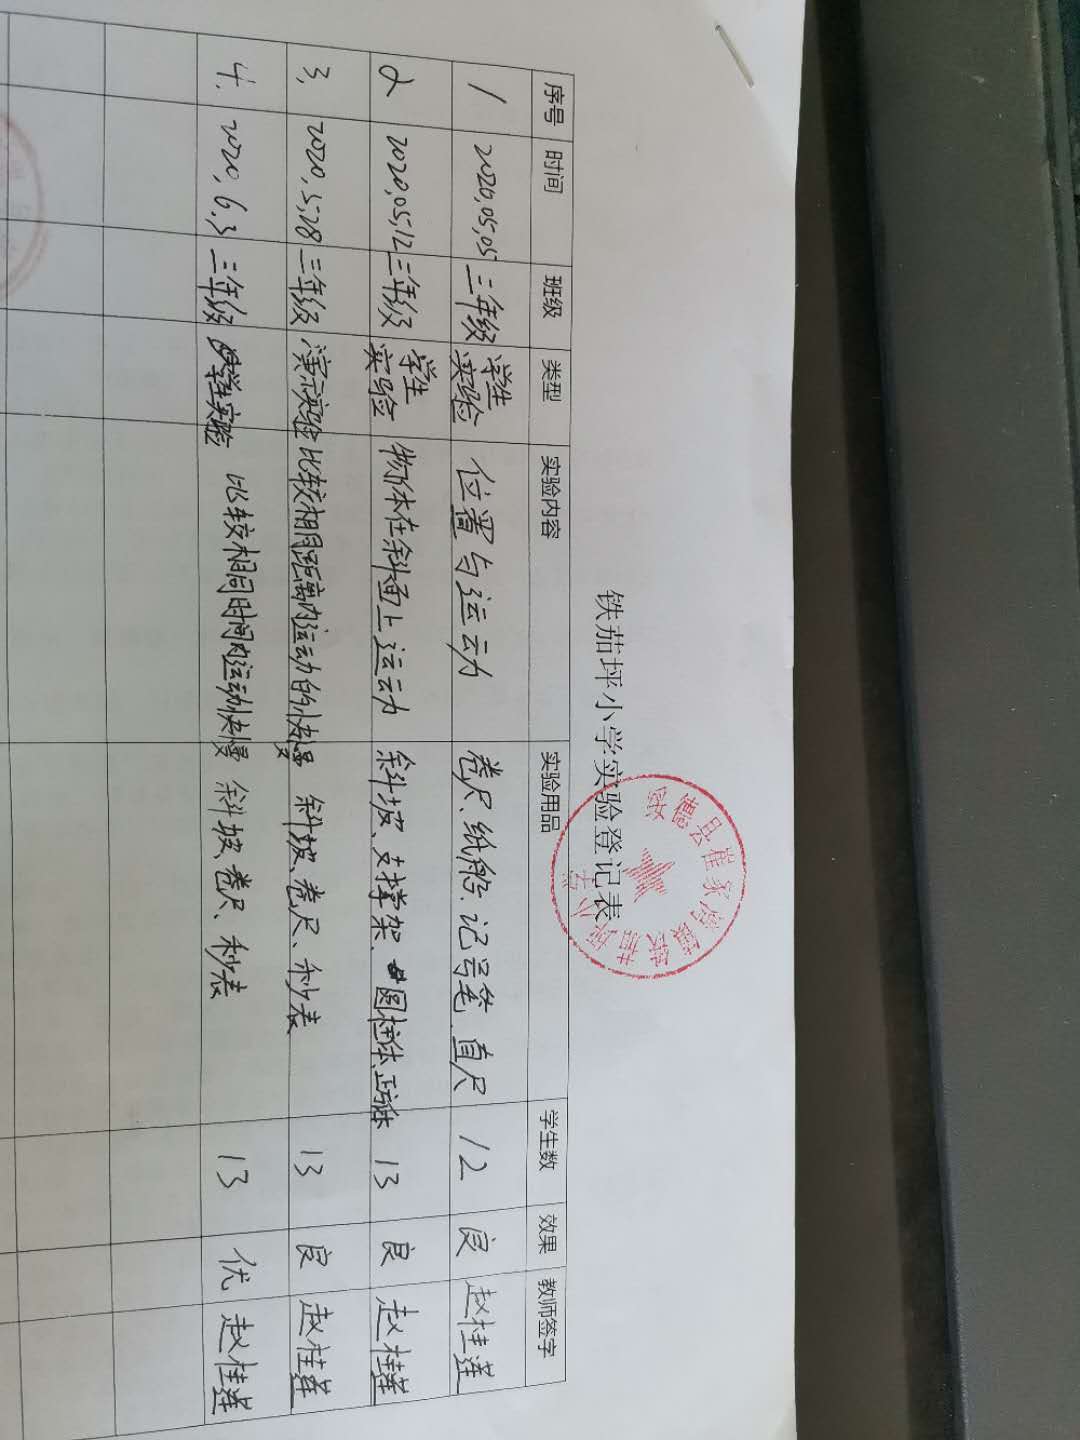 铁茄坪小学实验登记表
序号 时间 班级 类型 实验内容 实验用品 学生数 效果 教师签字
1 2020,05,05 三年级 学生实验 位置与运动 卷尺、纸船、记号笔、直尺 12 良 赵桂莲
2 2020,05,12 三年级 学生实验 物体在斜面上运动 斜坡、支撑架、圆柱体、正方体 13 良 赵桂莲
3. 2020,5,28 三年级 演示实验 比较相同距离内运动的快慢 斜坡、卷尺、秒表 13 良 赵桂莲
4. 2020,6,3 三年级 学生实验 比较相同时间内运动快慢 斜坡、卷尺、秒表 13 优 赵桂莲
绥德县崔家湾镇铁茄坪小学